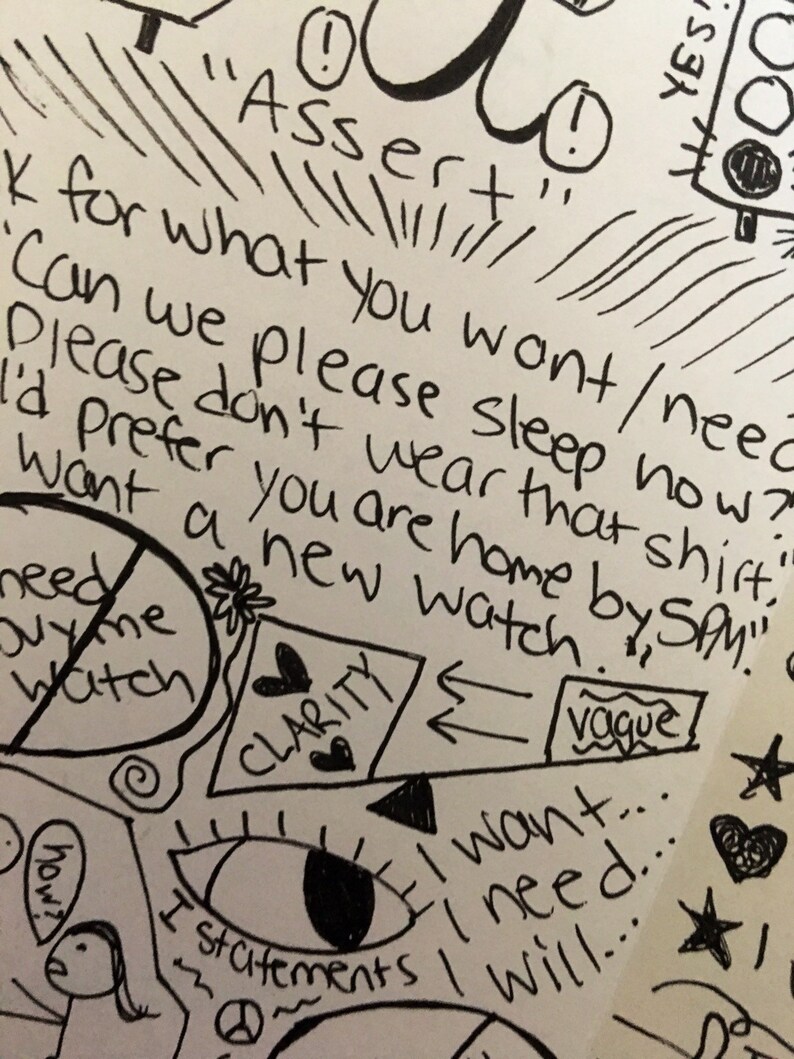 YES!
!
!
"Assert"
K for what you want/need
"Can we please sleep now?
Please don't wear that shirt."
I'd prefer you are home by 5PM".
want a new watch."
need
buy me
watch
CLARITY
vague
I want...
I need...
I will...
I statements
how?
I